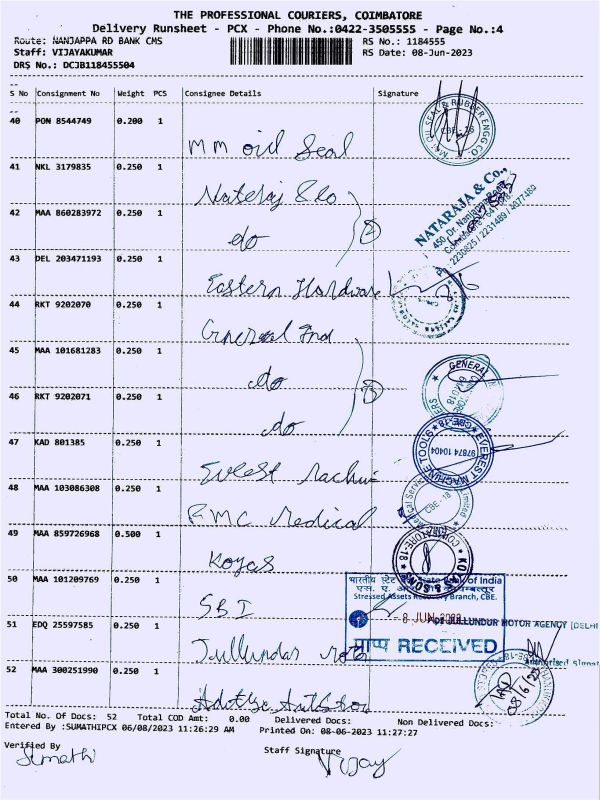 THE PROFESSIONAL COURIERS, COIMBATORE
Delivery Runsheet - PCX - Phone No.:0422-3505555 - Page No.:4
Route: NANJAPPA RD BANK CMS RS No.: 1184555
Staff: VIJAYAKUMAR RS Date: 08-Jun-2023
DRS No.: DCJB118455504
S No Consignment No Weight PCS Consignee Details Signature
40 PON 8544749 0.200 1
MM oil Seal
41 NKL 3179835 0.250 1
Nataraj & Co
42 MAA 860283972 0.250 1
do
NATARAJA & Co.,
450, Dr. Nanjappa Road
43 DEL 203471193 0.250 1
Eastern Hardware
44 RKT 9202070 0.250 1
General Ind
45 MAA 101681283 0.250 1
do
GENERAL
46 RKT 9202071 0.250 1
do
47 KAD 801385 0.250 1
EVEREST MACHINE TOOLS
97874 10404
48 MAA 103086308 0.250 1
RMC Medical
CBE - 18
49 MAA 859726968 0.500 1
Koyas
COIMBATORE-18
50 MAA 101209769 0.250 1
SBI
भारतीय स्टेट State Bank of India
Stressed Assets Recovery Branch, CBE.
51 EDQ 25597585 0.250 1
8 JUN 2023
JULLUNDUR MOTOR AGENCY (DELHI
प्राप्त RECEIVED
Jullundar
Authorised Signat
52 MAA 300251990 0.250 1
08/6/23
Total No. Of Docs: 52 Total COD Amt: 0.00 Delivered Docs: Non Delivered Docs:
Entered By :SUMATHIPCX 06/08/2023 11:26:29 AM Printed On: 08-06-2023 11:27:27
Verified By Staff Signature
Sumathi Vijay